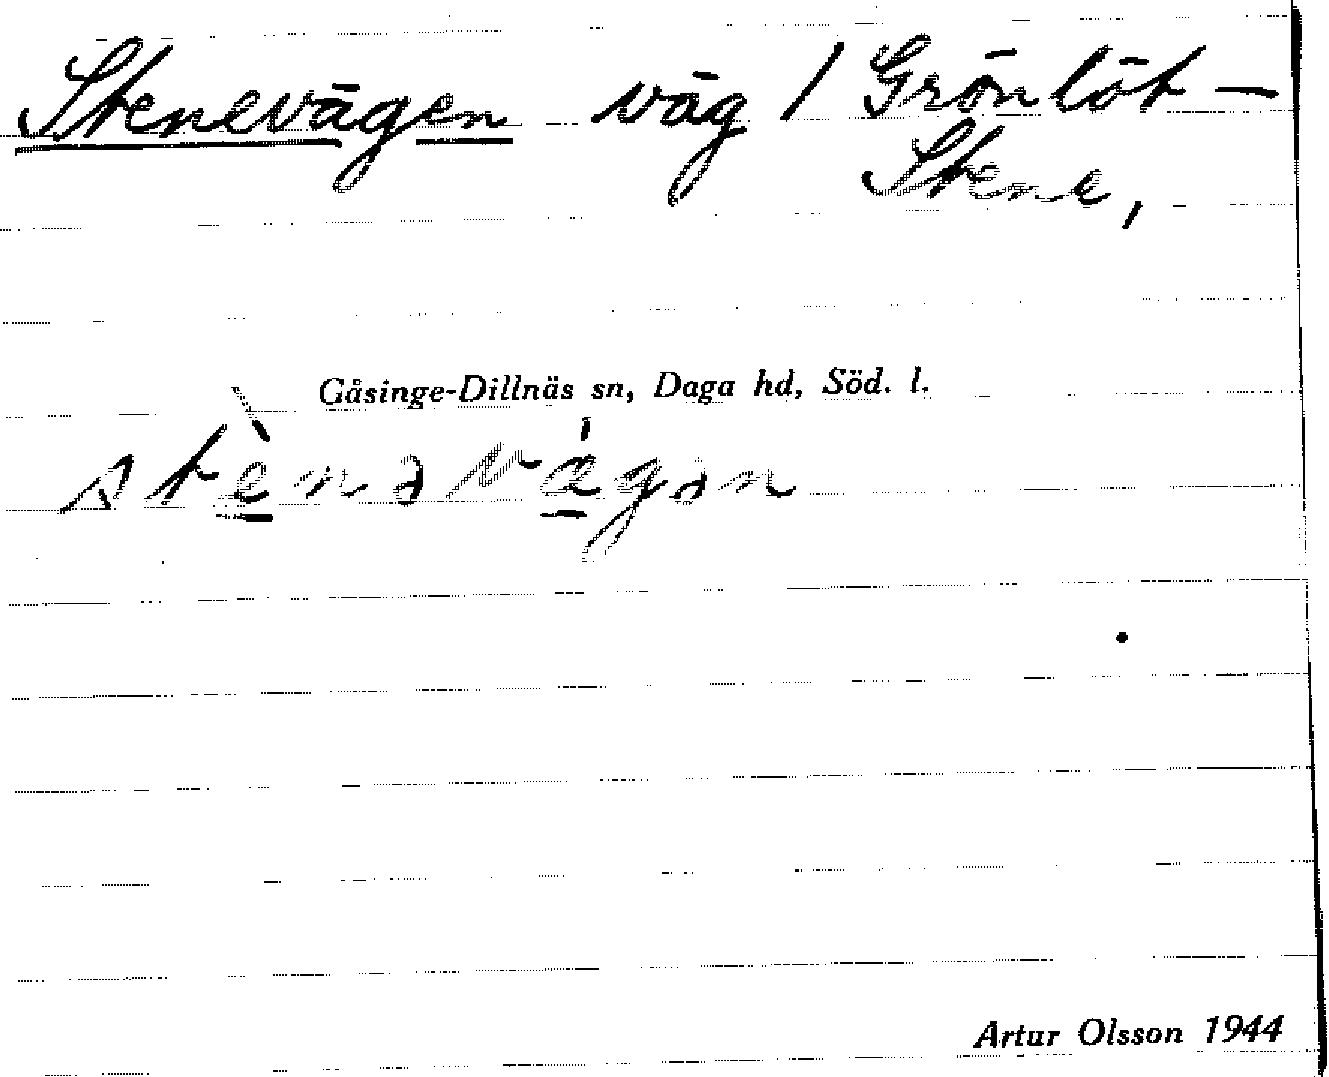 Stenevägen väg / Grönlöt –
Stene,
Gåsinge-Dillnäs sn, Daga hd, Söd. l.
stè̱nəvá̱gən
Artur Olsson 1944